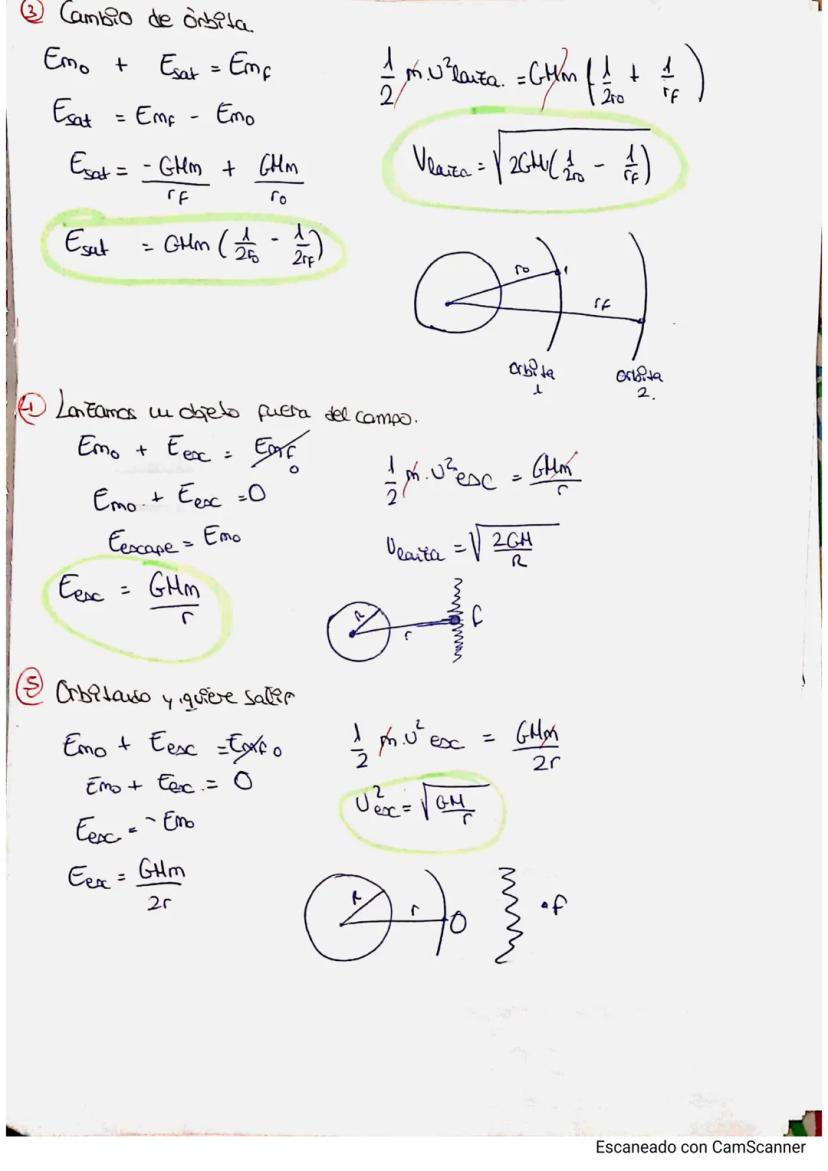 ③ Cambio de òrbita.
Em₀ + Esat = Emf
Esat = Emf - Em₀
Esat = -GMm/rf + GMm/r₀
Esat = GMm (1/2r₀ - 1/2rf)
1/2 m.v² lanza. = GMm (1/2r₀ + 1/rf)
Vlanza = √2GM(1/2r₀ - 1/rf)
r₀
rf
órbita 1
órbita 2.
④ Lanzamos un objeto fuera del campo.
Em₀ + Eesc = Emf 0
Em₀ + Eesc = 0
Eescape = Em₀
Eesc = GMm/r
1/2 m.v² esc = GMm/r
vlanza = √2GM/R
R
r
f
⑤ Orbitando y quiere salir
Em₀ + Eesc = Emf 0
Em₀ + Eesc. = 0
Eesc = - Em₀
Eex = GMm/2r
1/2 m.v² esc = GMm/2r
v²esc = √GM/r
R
r
O
.f
Escaneado con CamScanner